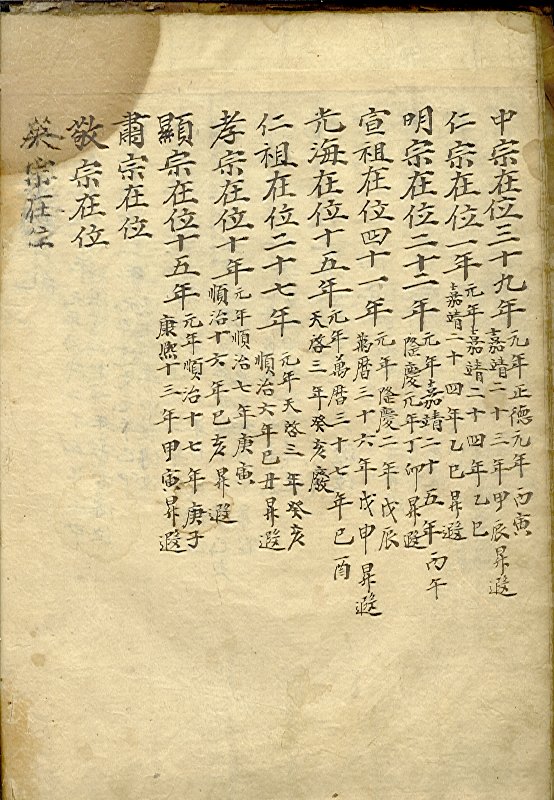 中宗在位三十九年 元年正德元年丙寅
嘉靖二十三年甲辰昇遐
仁宗在位一年 元年嘉靖二十四年乙巳
嘉靖二十四年乙巳昇遐
明宗在位二十二年 元年嘉靖二十五年丙午
隆慶元年丁卯昇遐
宣祖在位四十一年 元年隆慶二年戊辰
萬暦三十六年戊申昇遐
光海在位十五年 元年萬暦三十七年己酉
天啓三年癸亥廢
仁祖在位二十七年 元年天啓三年癸亥
順治六年己丑昇遐
孝宗在位十年 元年順治七年庚寅
順治十六年己亥昇遐
顯宗在位十五年 元年順治十七年庚子
康熙十三年甲寅昇遐
肅宗在位
敬宗在位
英宗在位